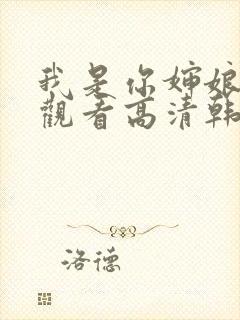 我是你婶娘
觀看高清韩
洛德